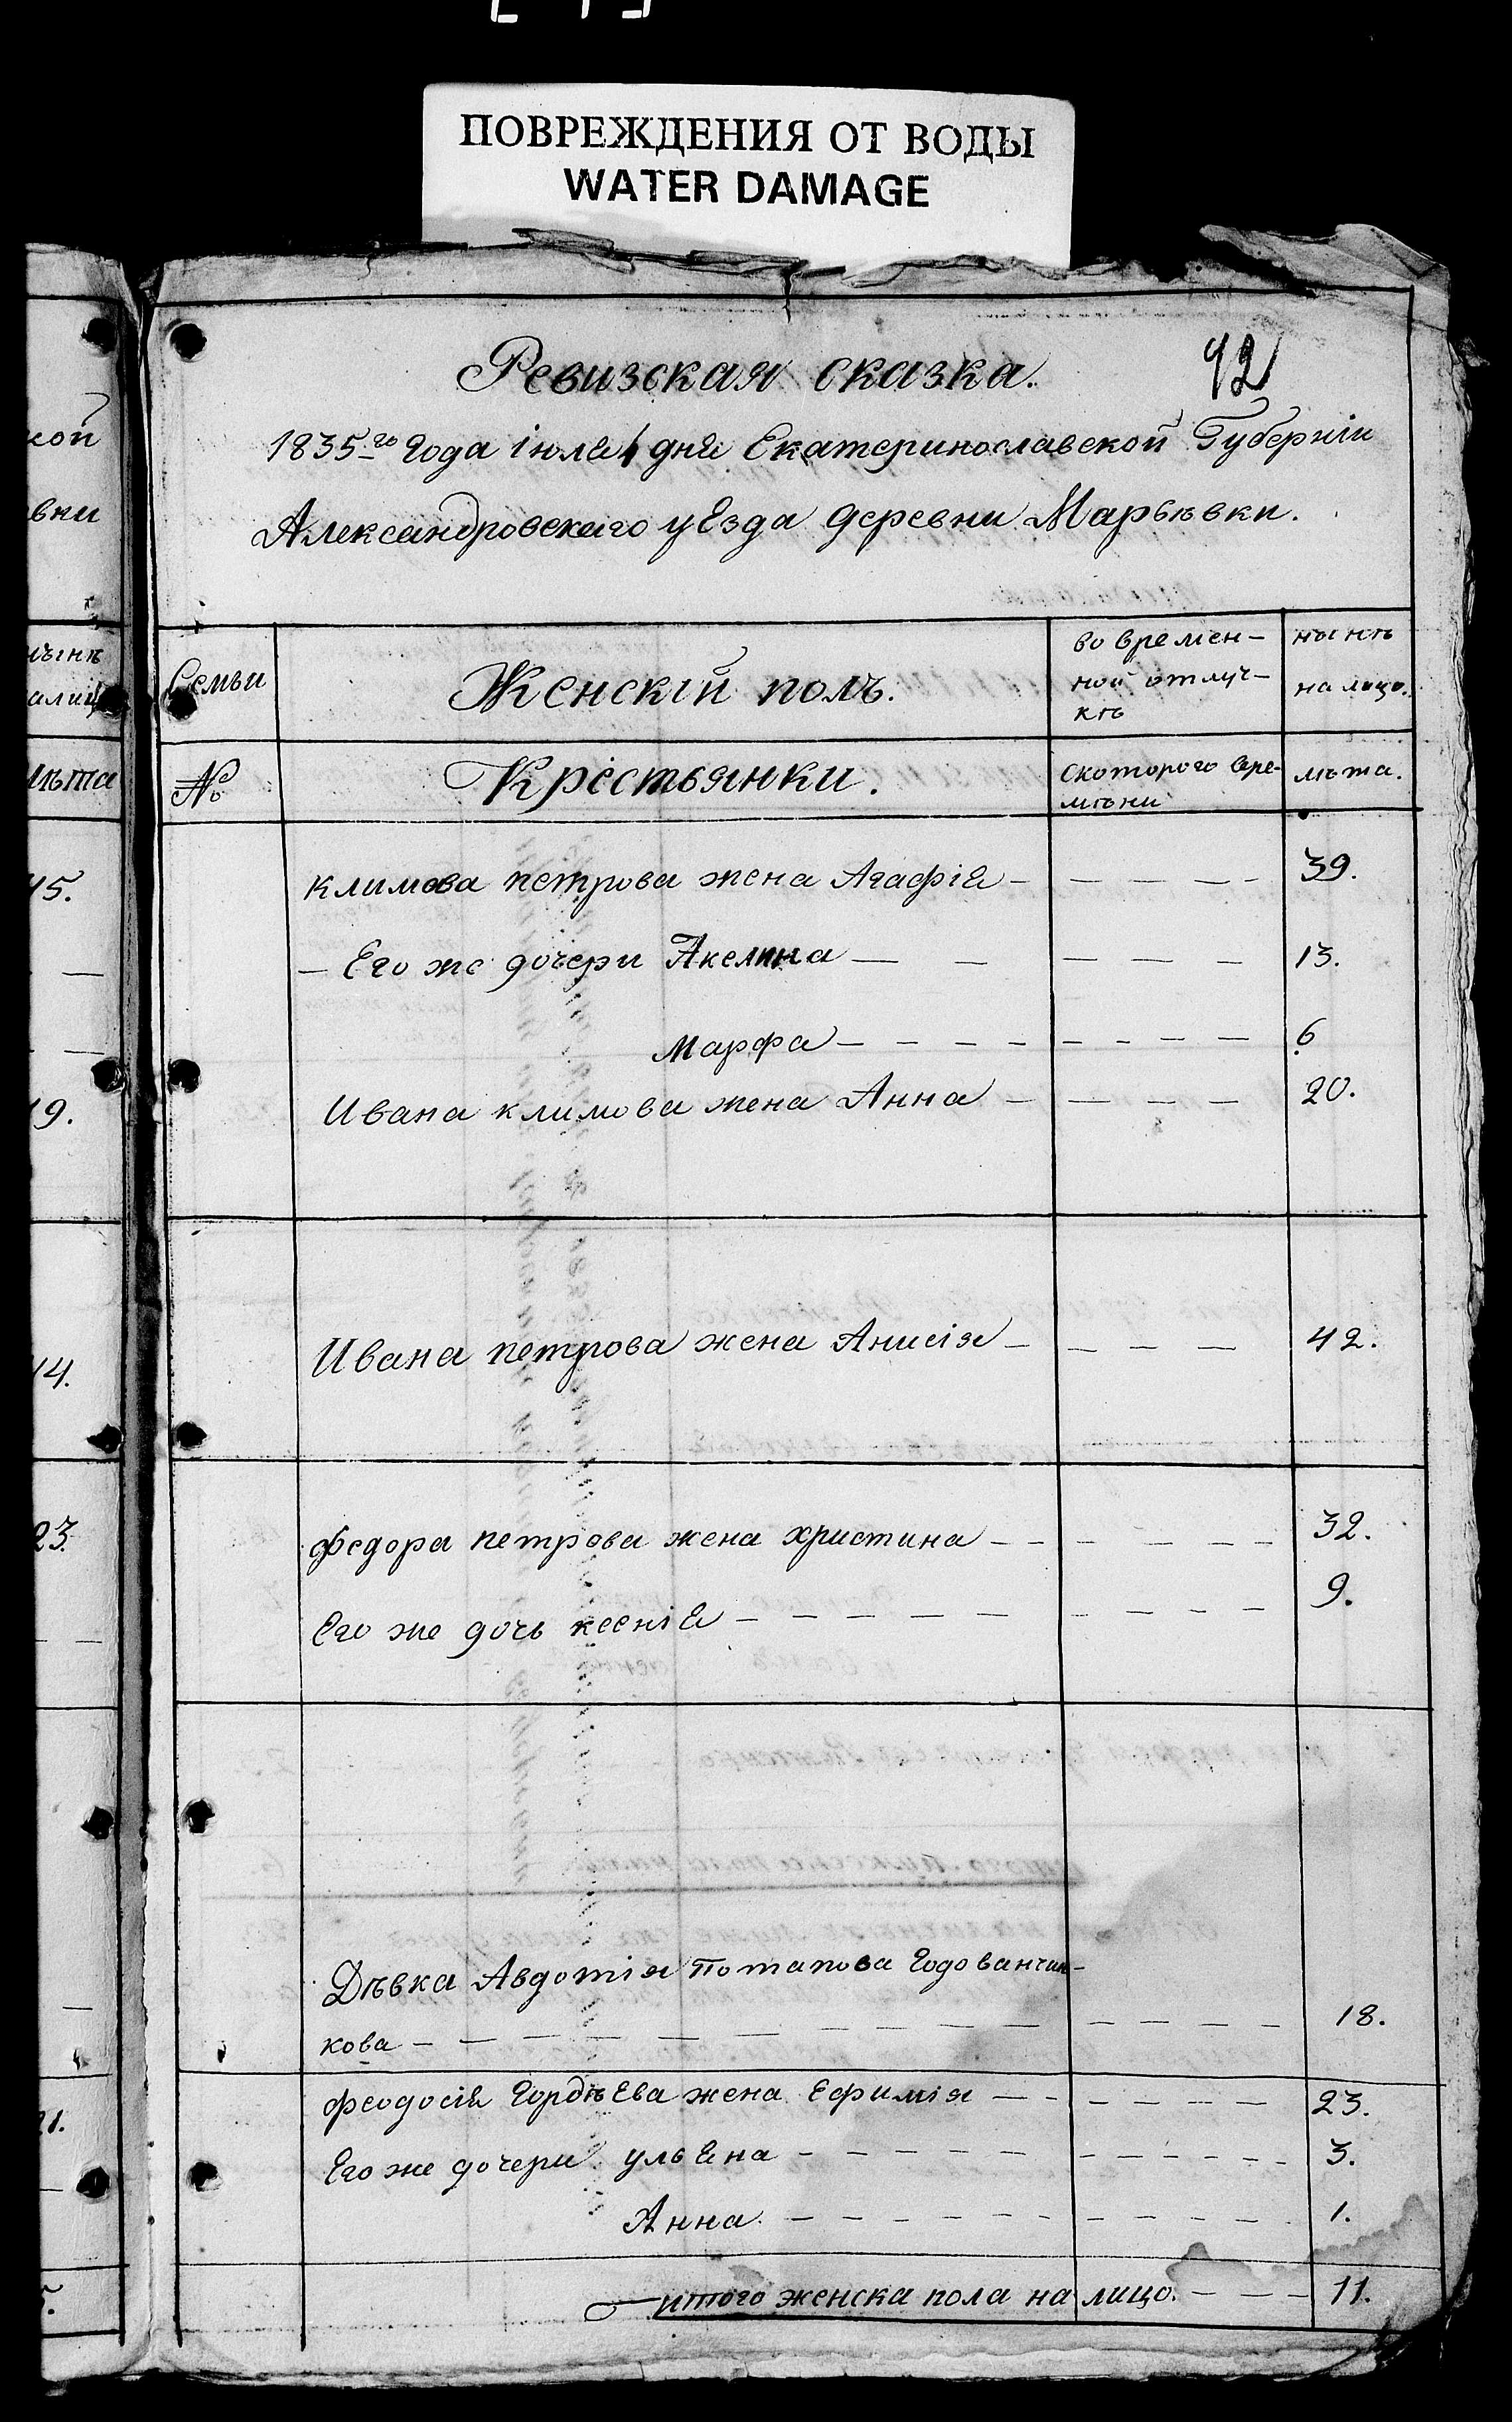 ПОВРЕЖДЕНИЯ ОТ ВОДЫ
WATER DAMAGE
Ревизская сказка.
42
1835го года іюля 4 дня Екатеринославской Губерніи
Александровскаго уезда деревни Марьѣвки.
Семьи
Женскій полъ.
во времен-
ной отлуч-
кѣ
нынѣ
на лицо.
№
Крестьянки.
скоторого вре-
мѣни
лѣта.
климова петрова жена Агафія - 39.
- Его же дочери Акелина - 13.
Марфа - 6
Ивана климова жена Анна - 20.
Ивана петрова жена Анисія - 42.
федора петрова жена христина - 32.
Его же дочь ксенія - 9.
Дѣвка Авдотія Потапова Годованчи-
кова - 18.
феодосія Гордѣева жена Ефимія - 23.
Его же дочери ульяна - 3.
Анна - 1.
итого женска пола на лицо. - 11.
кой
вки
лѣта
15.
19.
14.
23.
21.